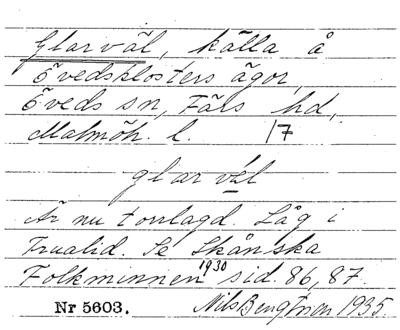 Glarväl, källa å
Övedsklosters ägor,
Öveds sn, Färs hd,
Malmöh. l. 17
glarvel
Är nu torrlagd. Låg i
Trualid. Se Skånska
Folkminnen 1930 sid. 86, 87.
Nr 5603. Nils Bengtsson 1935.